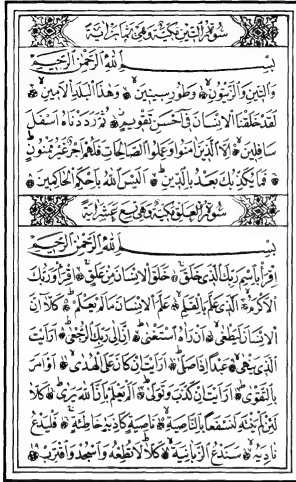 سورة التين مكية وهي ثمان اية
بسم الله الرحمن الرحيم
والتين والزيتون وطور سينين وهذا البلد الامين
لقد خلقنا الانسان في احسن تقويم ثم رددناه اسفل
سافلين الا الذين امنوا وعملوا الصالحات فلهم اجر غير ممنون
فما يكذبك بعد بالدين اليس الله باحكم الحاكمين
سورة العلق مكية وهي تسع عشر اية
بسم الله الرحمن الرحيم
اقرأ باسم ربك الذي خلق خلق الانسان من علق اقرأ وربك
الاكرم الذي علم بالقلم علم الانسان مالم يعلم كلا ان
الانسان ليطغى ان رآه استغنى ان الى ربك الرجعى ارايت
الذي ينهى عبدا اذا صلى ارايت ان كان على الهدى او امر
بالتقوى ارايت ان كذب وتولى الم يعلم بان الله يرى كلا
لئن لم ينته لنسفعا بالناصية ناصية كاذبة خاطئة فليدع
ناديه سندع الزبانية كلا لا تطعه واسجد واقترب